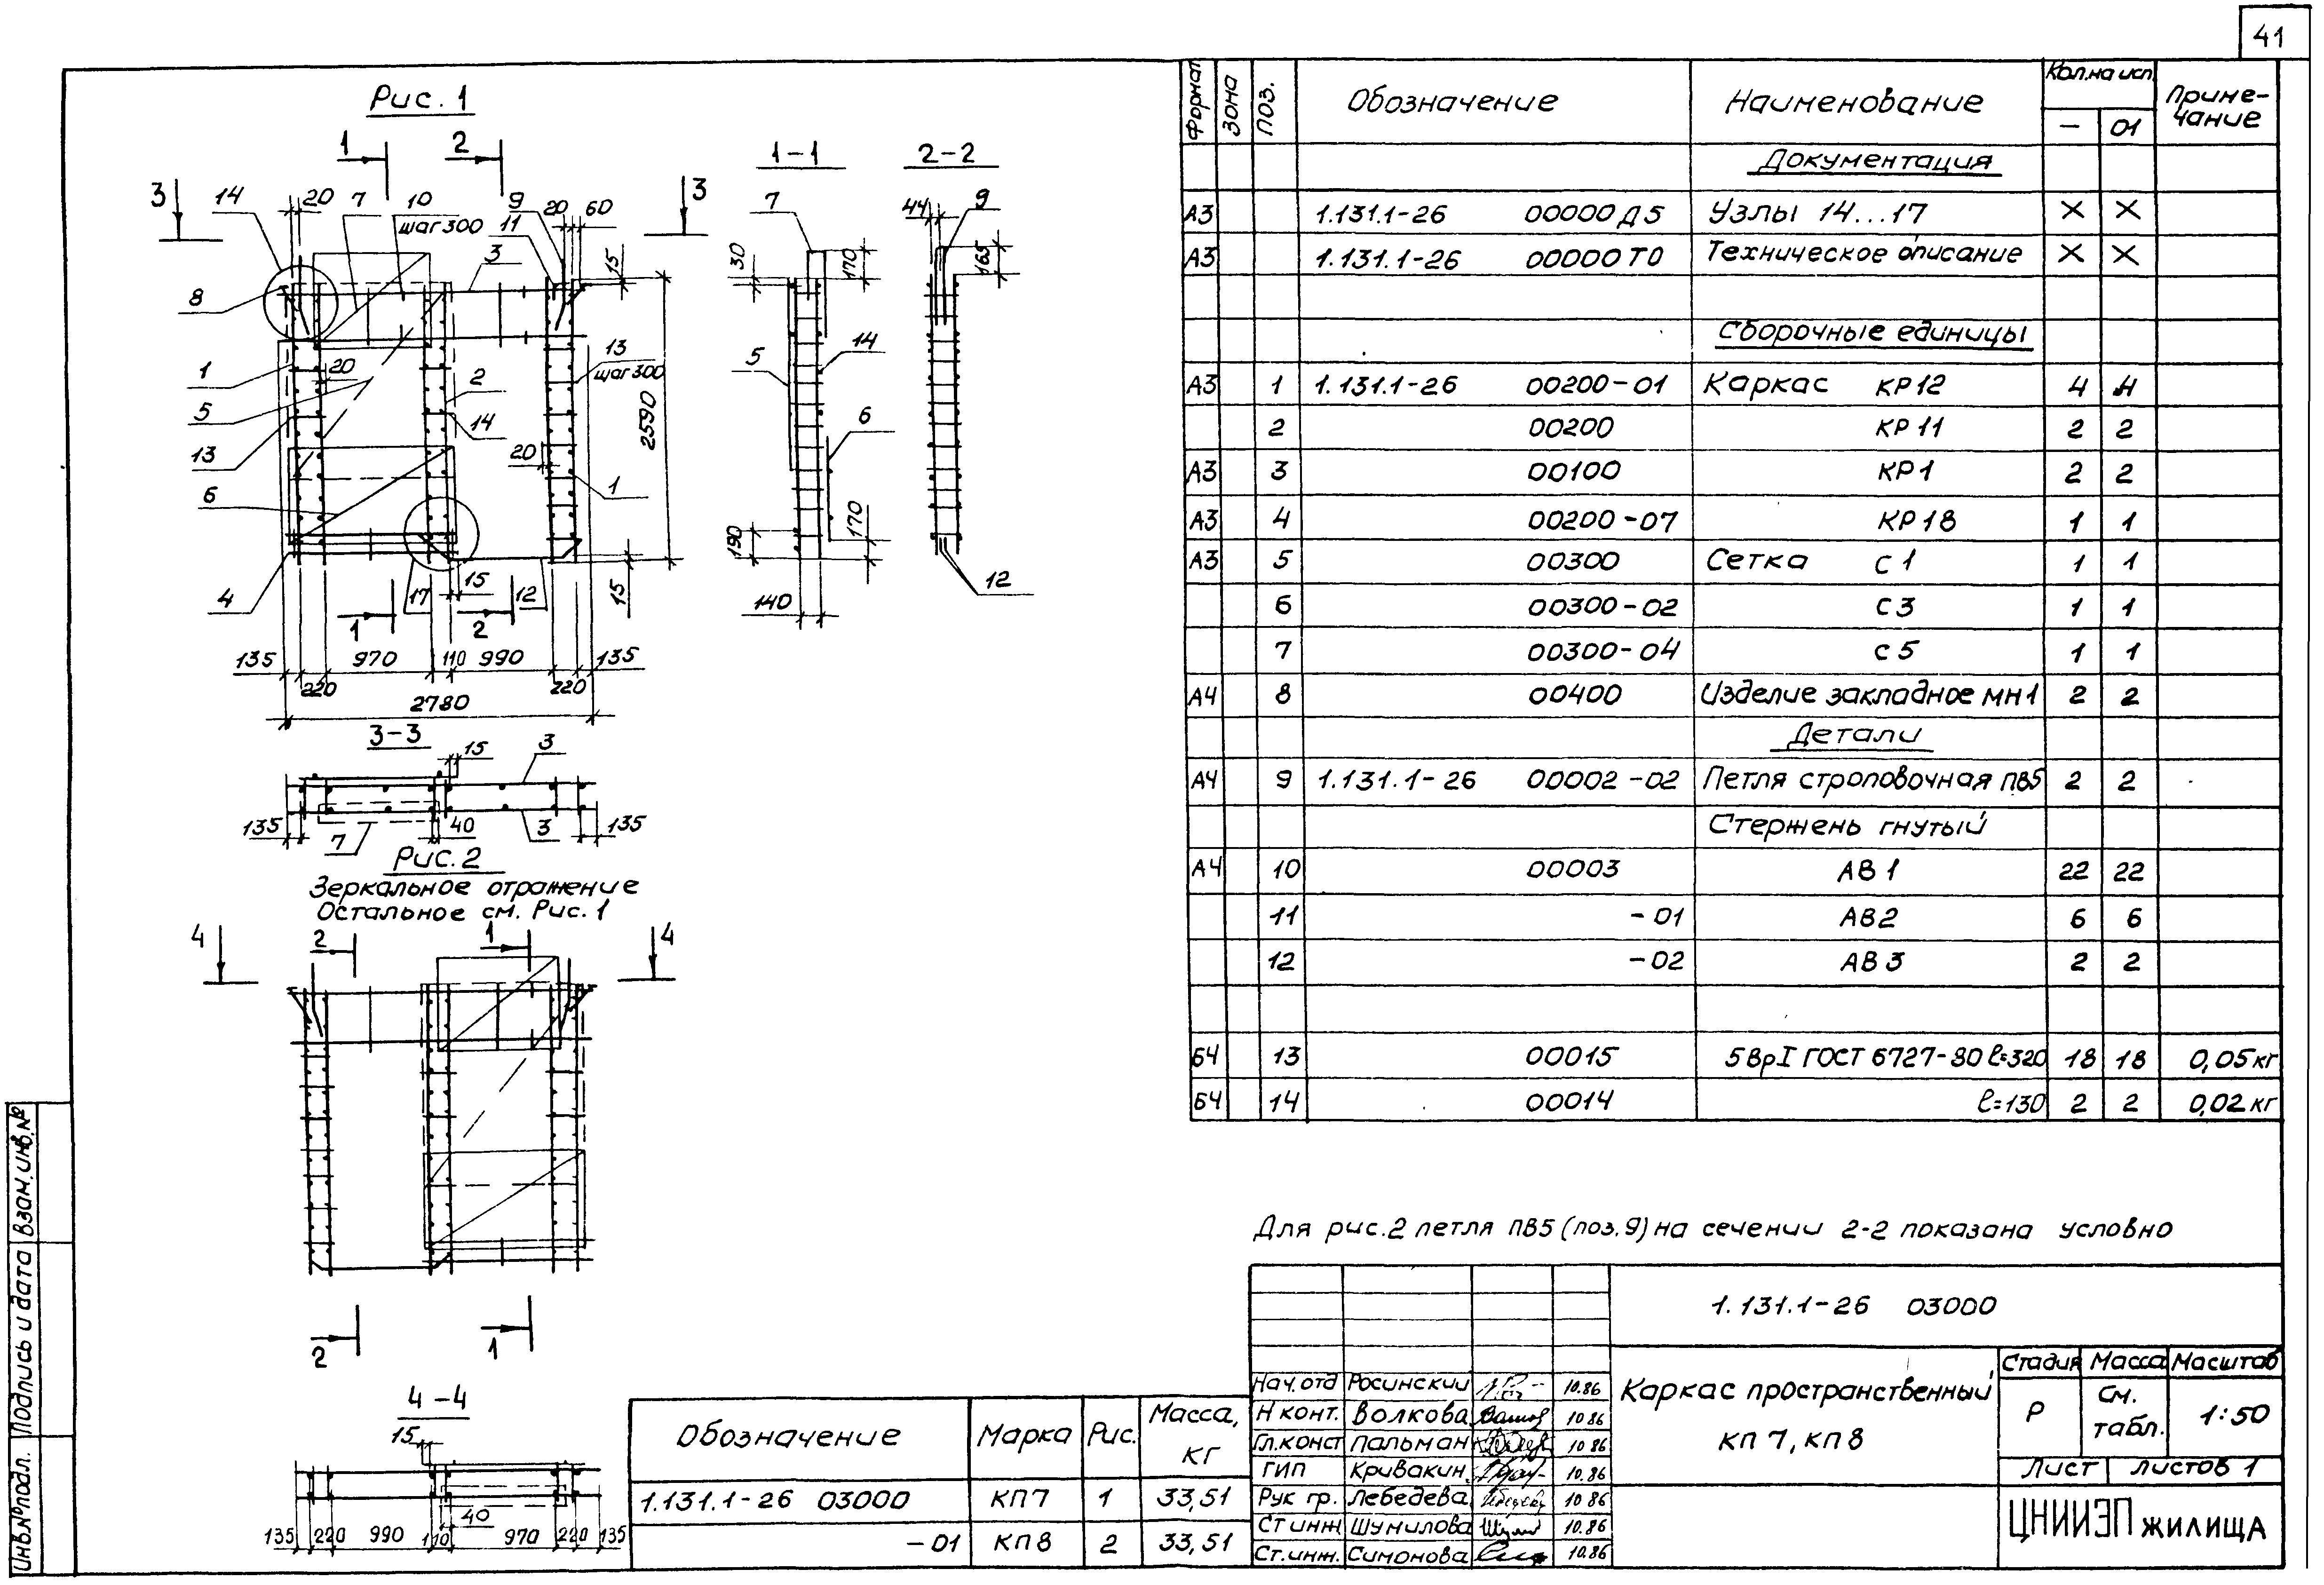 41
Рис. 1
1 2
3 3
14 20 7 10 9 20 60
шаг 300 11
3 15
8
1 20 13
шаг 300
2
5
14 2590
13 20
6 1
4 17 15 12 15
1 2
135 970 110 990 135
220 220
2780
1-1
7
30 170
5 14
6
190 170
140
2-2
44 9
165
12
3-3
15 3
135 7 40 3 135
Рис. 2
Зеркальное отражение
Остальное см. Рис. 1
4 2 1 4
2 1
4-4
15
40
135 220 990 110 970 220 135
Формат Зона Поз. Обозначение Наименование Кол.на исп. Приме-
чание
– 01
Документация
А3 1.131.1-26 00000Д5 Узлы 14...17 X X
А3 1.131.1-26 00000ТО Техническое описание X X
Сборочные единицы
А3 1 1.131.1-26 00200-01 Каркас КР12 4 4
2 00200 КР11 2 2
А3 3 00100 КР1 2 2
А3 4 00200-07 КР18 1 1
А3 5 00300 Сетка С1 1 1
6 00300-02 С3 1 1
7 00300-04 С5 1 1
А4 8 00400 Изделие закладное МН1 2 2
Детали
А4 9 1.131.1-26 00002-02 Петля строповочная ПВ5 2 2
Стержень гнутый
А4 10 00003 АВ1 22 22
11 -01 АВ2 6 6
12 -02 АВ3 2 2
Б4 13 00015 5ВрI ГОСТ 6727-80 ℓ=320 18 18 0,05кг
Б4 14 00014 ℓ=130 2 2 0,02кг
Для рис.2 петля ПВ5 (поз.9) на сечении 2-2 показана условно
Обозначение Марка Рис. Масса,
кг
1.131.1-26 03000 КП7 1 33,51
-01 КП8 2 33,51
1.131.1-26 03000
Нач.отд Росинский 10.86
Н конт. Волкова 10 86
Гл.конст Пальман 10 86
ГИП Кривакин 10.86
Рук гр. Лебедева 10 86
Ст инж Шумилова 10.86
Ст.инж. Симонова 10.86
Каркас пространственный
КП7, КП8
Стадия Масса Масштаб
Р см.
табл. 1:50
Лист Листов 1
ЦНИИЭП жилища
Инв.№подл. Подпись и дата Взам.инв.№